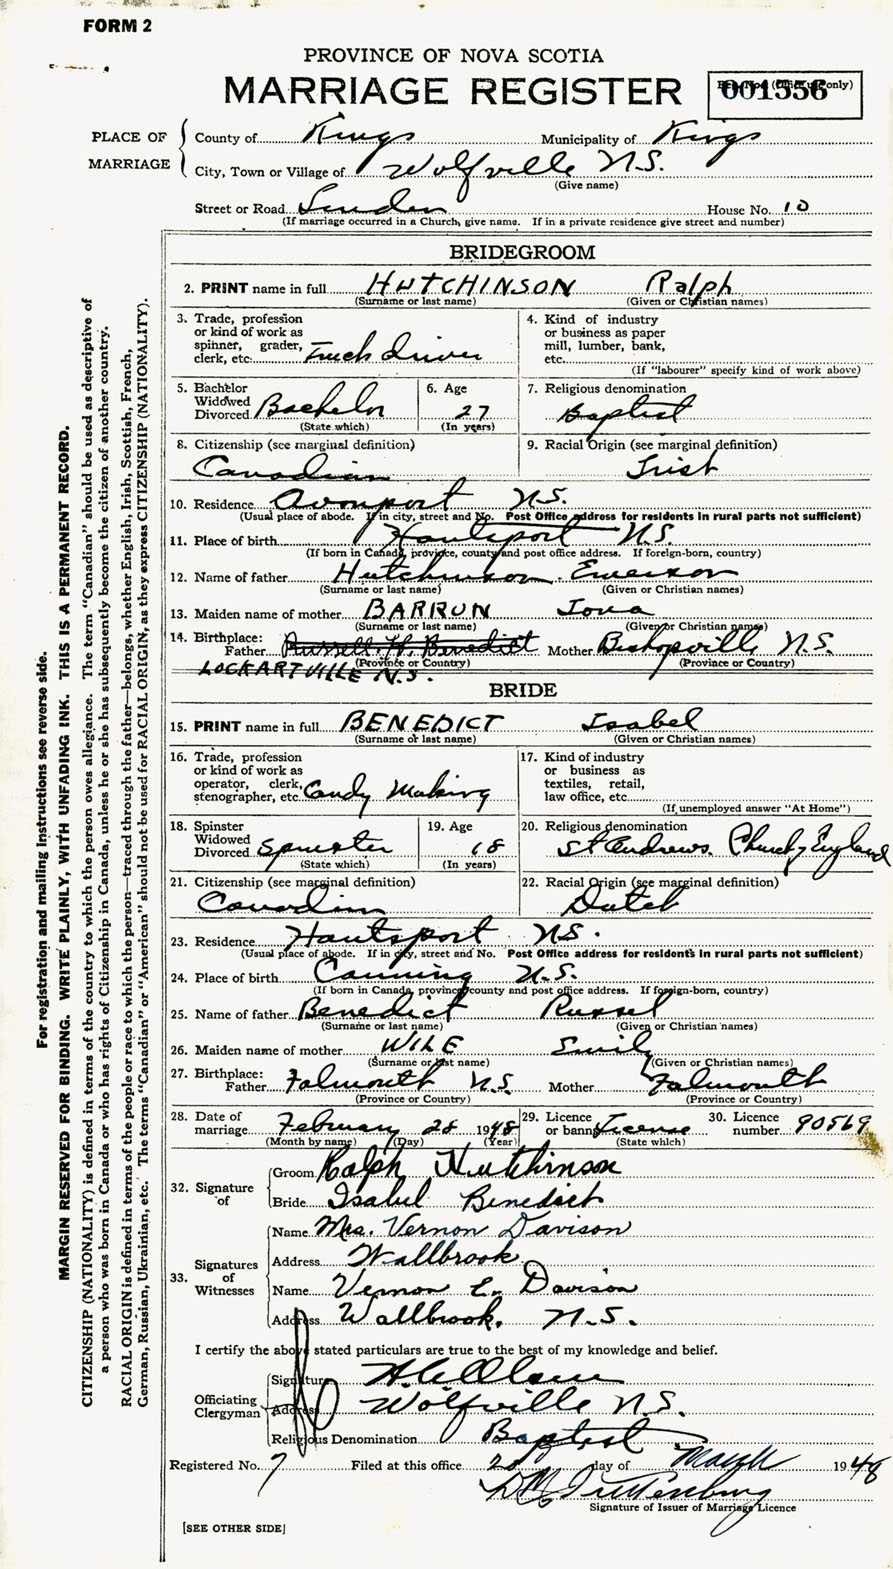 FORM 2
PROVINCE OF NOVA SCOTIA
MARRIAGE REGISTER
001556
PLACE OF MARRIAGE
County of Kings Municipality of Kings
City, Town or Village of Wolfville N.S.
(Give name)
Street or Road Linden House No. 10
(If marriage occurred in a Church, give name. If in a private residence give street and number)
BRIDEGROOM
2. PRINT name in full HUTCHINSON Ralph
(Surname or last name) (Given or Christian names)
3. Trade, profession or kind of work as spinner, grader, clerk, etc. Truck driver
4. Kind of industry or business as paper mill, lumber, bank, etc.
(If "labourer" specify kind of work above)
5. Bachelor Widowed Divorced Bachelor
(State which)
6. Age 27
(In years)
7. Religious denomination Baptist
8. Citizenship (see marginal definition) Canadian
9. Racial Origin (see marginal definition) Irish
10. Residence Avonport N.S.
(Usual place of abode. If in city, street and No. Post Office address for residents in rural parts not sufficient)
11. Place of birth Hantsport N.S.
(If born in Canada, province, county and post office address. If foreign-born, country)
12. Name of father Hutchinson Emerson
(Surname or last name) (Given or Christian names)
13. Maiden name of mother BARRON Iona
(Surname or last name) (Given or Christian names)
14. Birthplace: Father Russell H. Benedict Mother Bishopville N.S.
(Province or Country) (Province or Country)
LOCKARTVILLE N.S.
BRIDE
15. PRINT name in full BENEDICT Isabel
(Surname or last name) (Given or Christian names)
16. Trade, profession or kind of work as operator, clerk, stenographer, etc. Candy Making
17. Kind of industry or business as textiles, retail, law office, etc.
(If unemployed answer "At Home")
18. Spinster Widowed Divorced Spinster
(State which)
19. Age 18
(In years)
20. Religious denomination St Andrews. Church of England
21. Citizenship (see marginal definition) Canadian
22. Racial Origin (see marginal definition) Dutch
23. Residence Hantsport N.S.
(Usual place of abode. If in city, street and No. Post Office address for residents in rural parts not sufficient)
24. Place of birth Canning N.S.
(If born in Canada, province, county and post office address. If foreign-born, country)
25. Name of father Benedict Russel
(Surname or last name) (Given or Christian names)
26. Maiden name of mother WILE Emily
(Surname or last name) (Given or Christian names)
27. Birthplace: Father Falmouth N.S. Mother Falmouth
(Province or Country) (Province or Country)
28. Date of marriage February 28 1948
(Month by name) (Day) (Year)
29. Licence or banns License
(State which)
30. Licence number 90569
32. Signature of
Groom Ralph Hutchinson
Bride Isabel Benedict
33. Signatures of Witnesses
Name Mrs. Vernon Davison
Address Wallbrook
Name Vernon E. Davison
Address Wallbrook. N.S.
I certify the above stated particulars are true to the best of my knowledge and belief.
Officiating Clergyman
Signature
Address Wolfville N.S.
Religious Denomination Baptist
Registered No. 7 Filed at this office day of March 1948
Signature of Issuer of Marriage Licence
[SEE OTHER SIDE]
For registration and mailing instructions see reverse side.
MARGIN RESERVED FOR BINDING. WRITE PLAINLY, WITH UNFADING INK. THIS IS A PERMANENT RECORD.
CITIZENSHIP (NATIONALITY) is defined in terms of the country to which the person owes allegiance. The term "Canadian" should be used as descriptive of
a person who was born in Canada or who has rights of Citizenship in Canada, unless he or she has subsequently become the citizen of another country.
RACIAL ORIGIN is defined in terms of the people or race to which the person—traced through the father—belongs, whether English, Irish, Scottish, French,
German, Russian, Ukrainian, etc. The terms "Canadian" or "American" should not be used for RACIAL ORIGIN, as they express CITIZENSHIP (NATIONALITY).